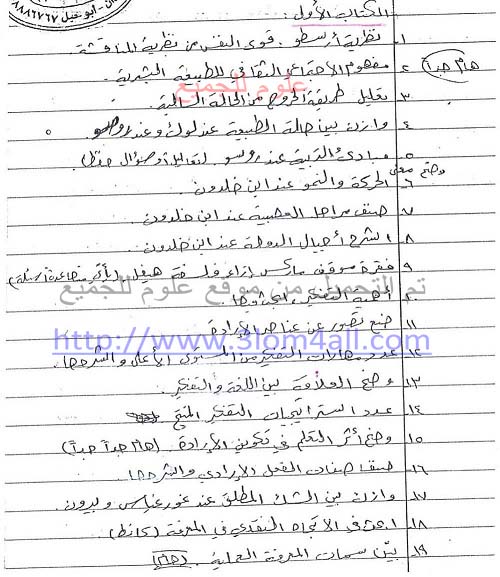 أبو نحيل
الكتاب الأول:
١. نظرية أرسطو. قوى النفس من نظرية للمناقشة
٢. مفهوم الاجتماعي الثقافي للطبيعة البشرية. هام جداً
علوم للجميع
٣. تعليل طريقة الخروج من الحالة السالبة.
٤. وازن بين حالة الطبيعة عند لوك وعند روسو.
٥. مبادئ التربية عند روسو (تعاليل أو سؤال حفظ)
٦. وضح معنى الحركة والنمو عند ابن خلدون
٧. صنف مراحل العصبية عند ابن خلدون.
٨. اشرح أجيال الدولة عند ابن خلدون.
٩. فقرة موقف ماركس إزاء فلسفة هيغل (يأتي منها عدة أسئلة)
تم التحميل من موقع علوم للجميع
١٠. أهمية التفكير
١١. ضع تصور عن عناصر الإرادة
http://www.3lom4all.com
١٢. عدد مهارات التفكير من المستوى الأعلى واشرحها.
١٣. وضح العلاقة بين اللغة والتفكير.
١٤. عدد استراتيجيات التفكير المنتج
١٥. وضح أثر التعلم في تكوين الإرادة. (هام جداً جداً)
١٦. صنف صفات الفعل الإرادي واشرحها.
١٧. وازن بين الشك المطلق عند غورغياس وبيرون.
١٨. ابحث في الاتجاه النقدي في المعرفة (كانط).
١٩. بيّن سمات المعرفة العملية. (هام)